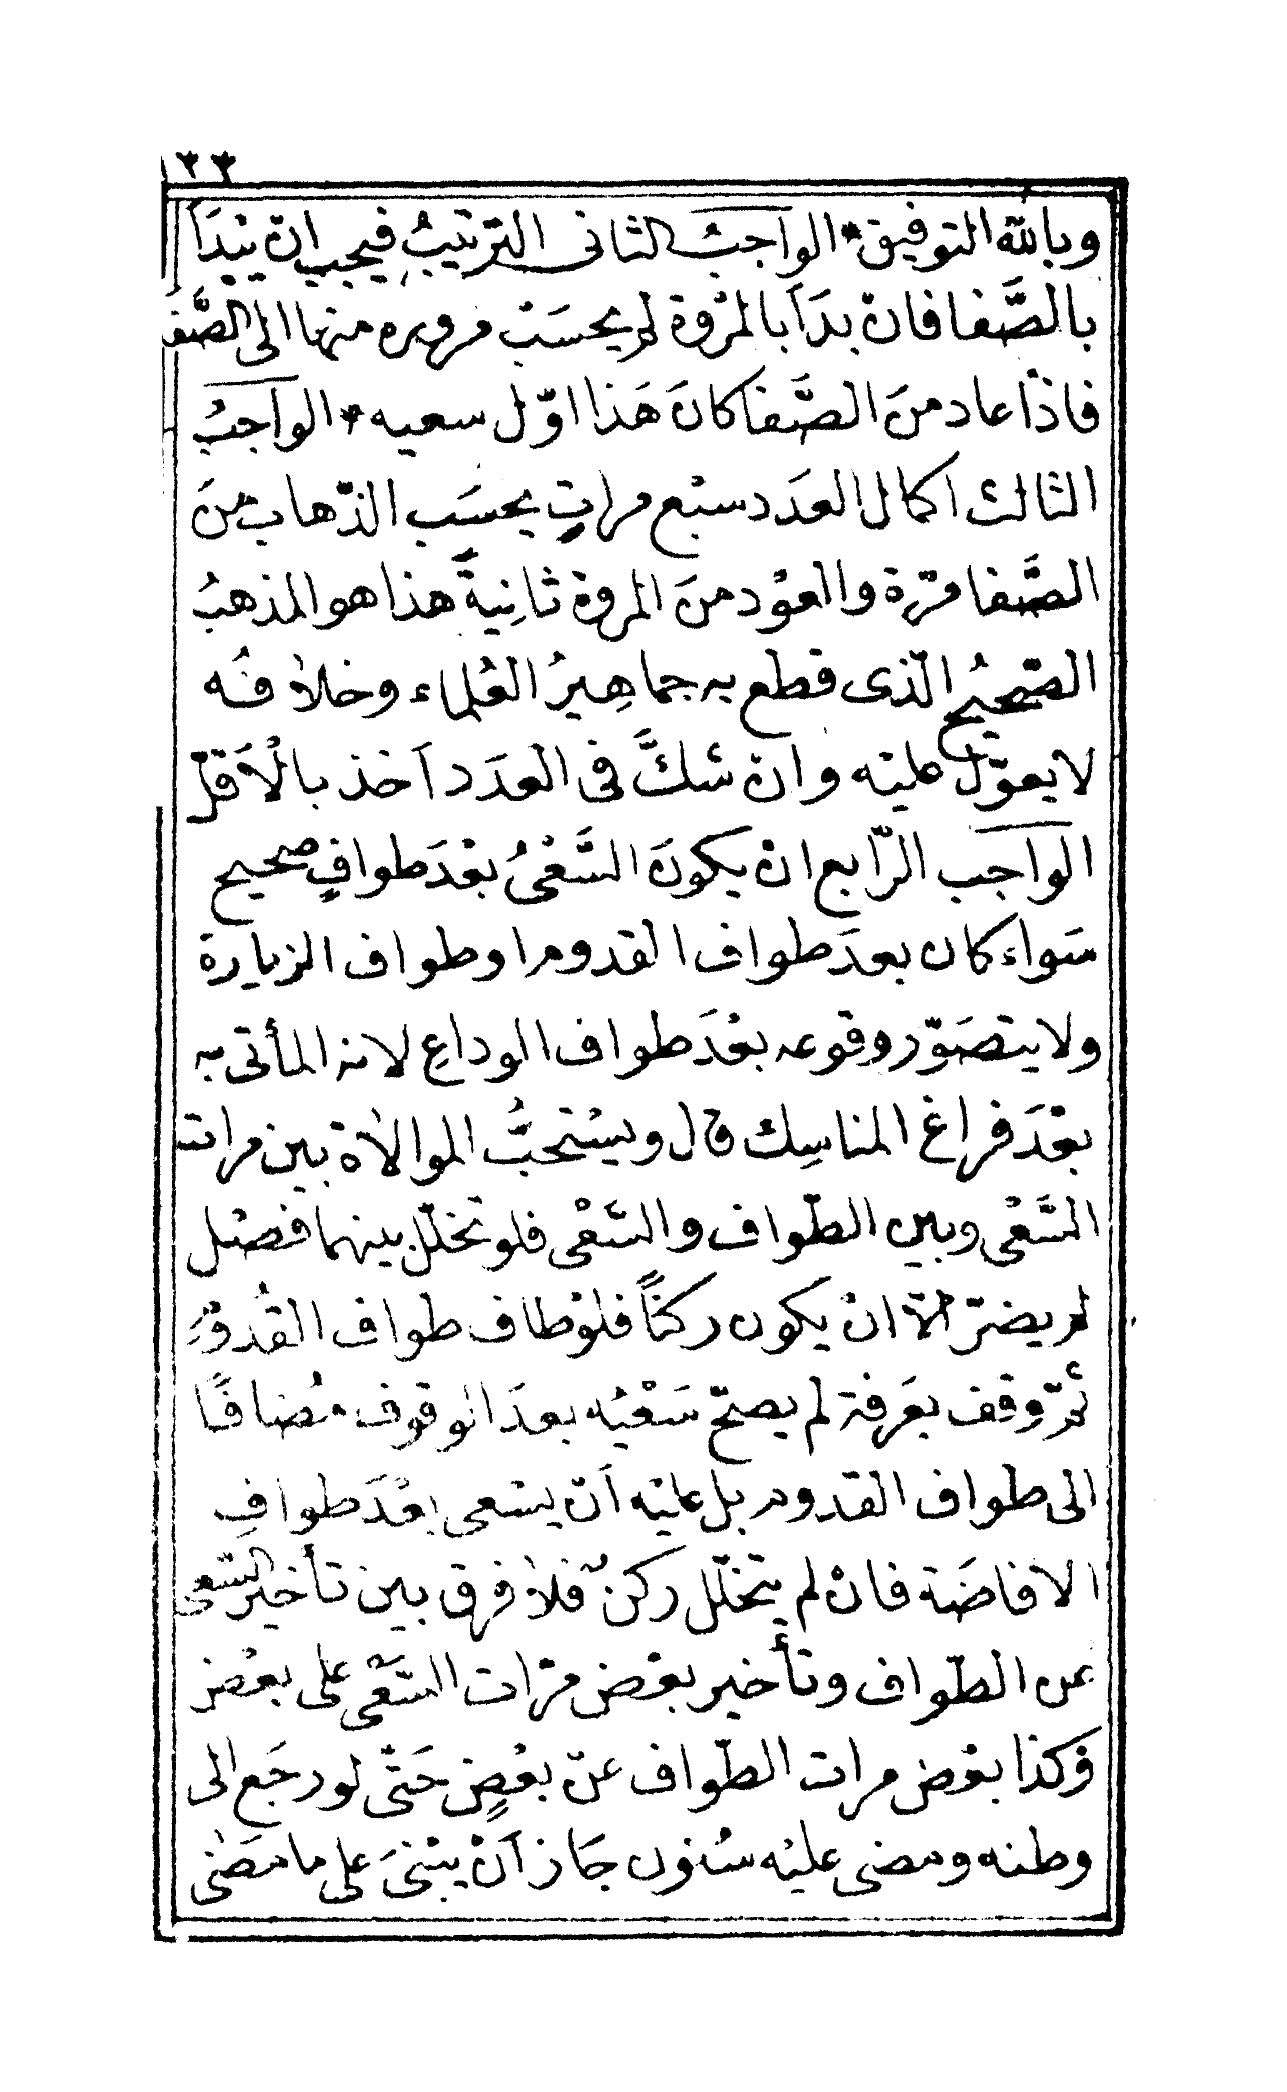 ١٣٣
وبالله التوفيق * الواجبُ الثانى الترتيبُ فيجب ان يبْدَأ
بالصَّفا فان بدَأ بالمرْوة لم يحسَبْ مروره منها الى الصّفَا
فاذا عاد منَ الصَّفا كانَ هَذا اوّل سعيه * الواجبُ
الثالث اكمال العدَد سبْع مراتٍ يحسَب الذّهاب منَ
الصَّفا مرّة والعوْد منَ المروة ثانِيةً هذا هو المذهبُ
الصّحيحُ الّذى قطع به جماهِيرُ العُلماء وخلافُه
لا يعوّل عليْه وان شكَّ فى العدَد اَخذ بالْاَقلّ
الواجب الرّابع انْ يكونَ السَّعْىُ بعْدَ طوافٍ صحيح
سَواء كان بعدَ طواف القدوم او طواف الزيارة
ولا يتصَوّر وقوعه بعْدَ طواف الوداعِ لانه المأتى به
بعْدَ فراغ المناسِك قال ويسْتحبُّ الموالاة بين مرات
السَّعْى وبين الطّواف والسّعْى فلو تخلّل بينهما فصْل
لم يضرّ الّا انْ يكون ركناً فلوْ طاف طواف القُدوْمِ
ثمّ وقف بعَرفة لم يصحّ سَعْيُه بعدَ الوقوف مُضافًا
الى طواف القدوم بل عليْه اَنْ يسْعى بعْدَ طوافِ
الافاضَة فانْ لم يتخلّل ركنٌ فلا فرق بين تأخير السّعى
عن الطّواف وتأخير بعْض مرّات السَّعْى على بعْض
وَكذا بعْض مرات الطّواف عنْ بعْضٍ حَتّى لو رجَع الى
وطنه ومضى عليْه سنُون جَاز اَنْ يبْنىَ على ما مضَى